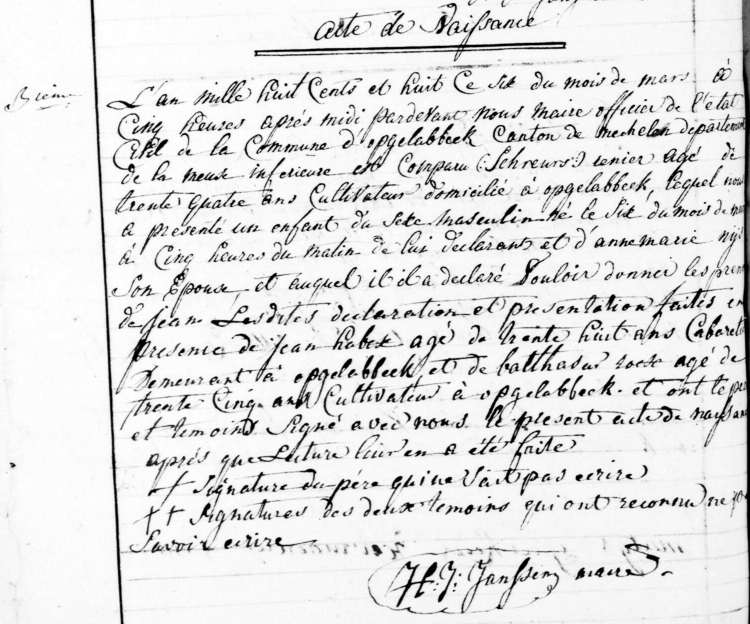 acte de Naissance
3ieme
L'an mille huit Cents et huit Ce six du mois de mars à
Cinq heures aprés midi pardevant nous maire officier de l'état
Civil de la Commune d'opgelabbeek Canton de mechelen departement
de la meuse inferieure est Comparu (Schreurs:) renier agé de
trente quatre ans Cultivateur domicilié à opgelabbeek, lequel nous
a présenté un enfant du sexe masculin né le six du mois de mars
à Cinq heures du matin de lui declarant et d'annemarie nijs
Son Epouse et auquel il il a declaré Vouloir donner les pren
de jean. Lesdites declaration et presentation faites en
presence de jean habex agé de trente huit ans Cabaretie
Demeurant à opgelabbeek et de balthasar agé de
trente Cinq ans Cultivateur à opgelabbeek. et ont le pere
et temoins Signé avec nous le present acte de naissan
aprés que Lecture leur en a été faite
+ Signature du pére qui ne Sait pas ecrire
++ Signatures des deux temoins qui ont reconnu ne
Savoir ecrire
H. J. Janssen maire